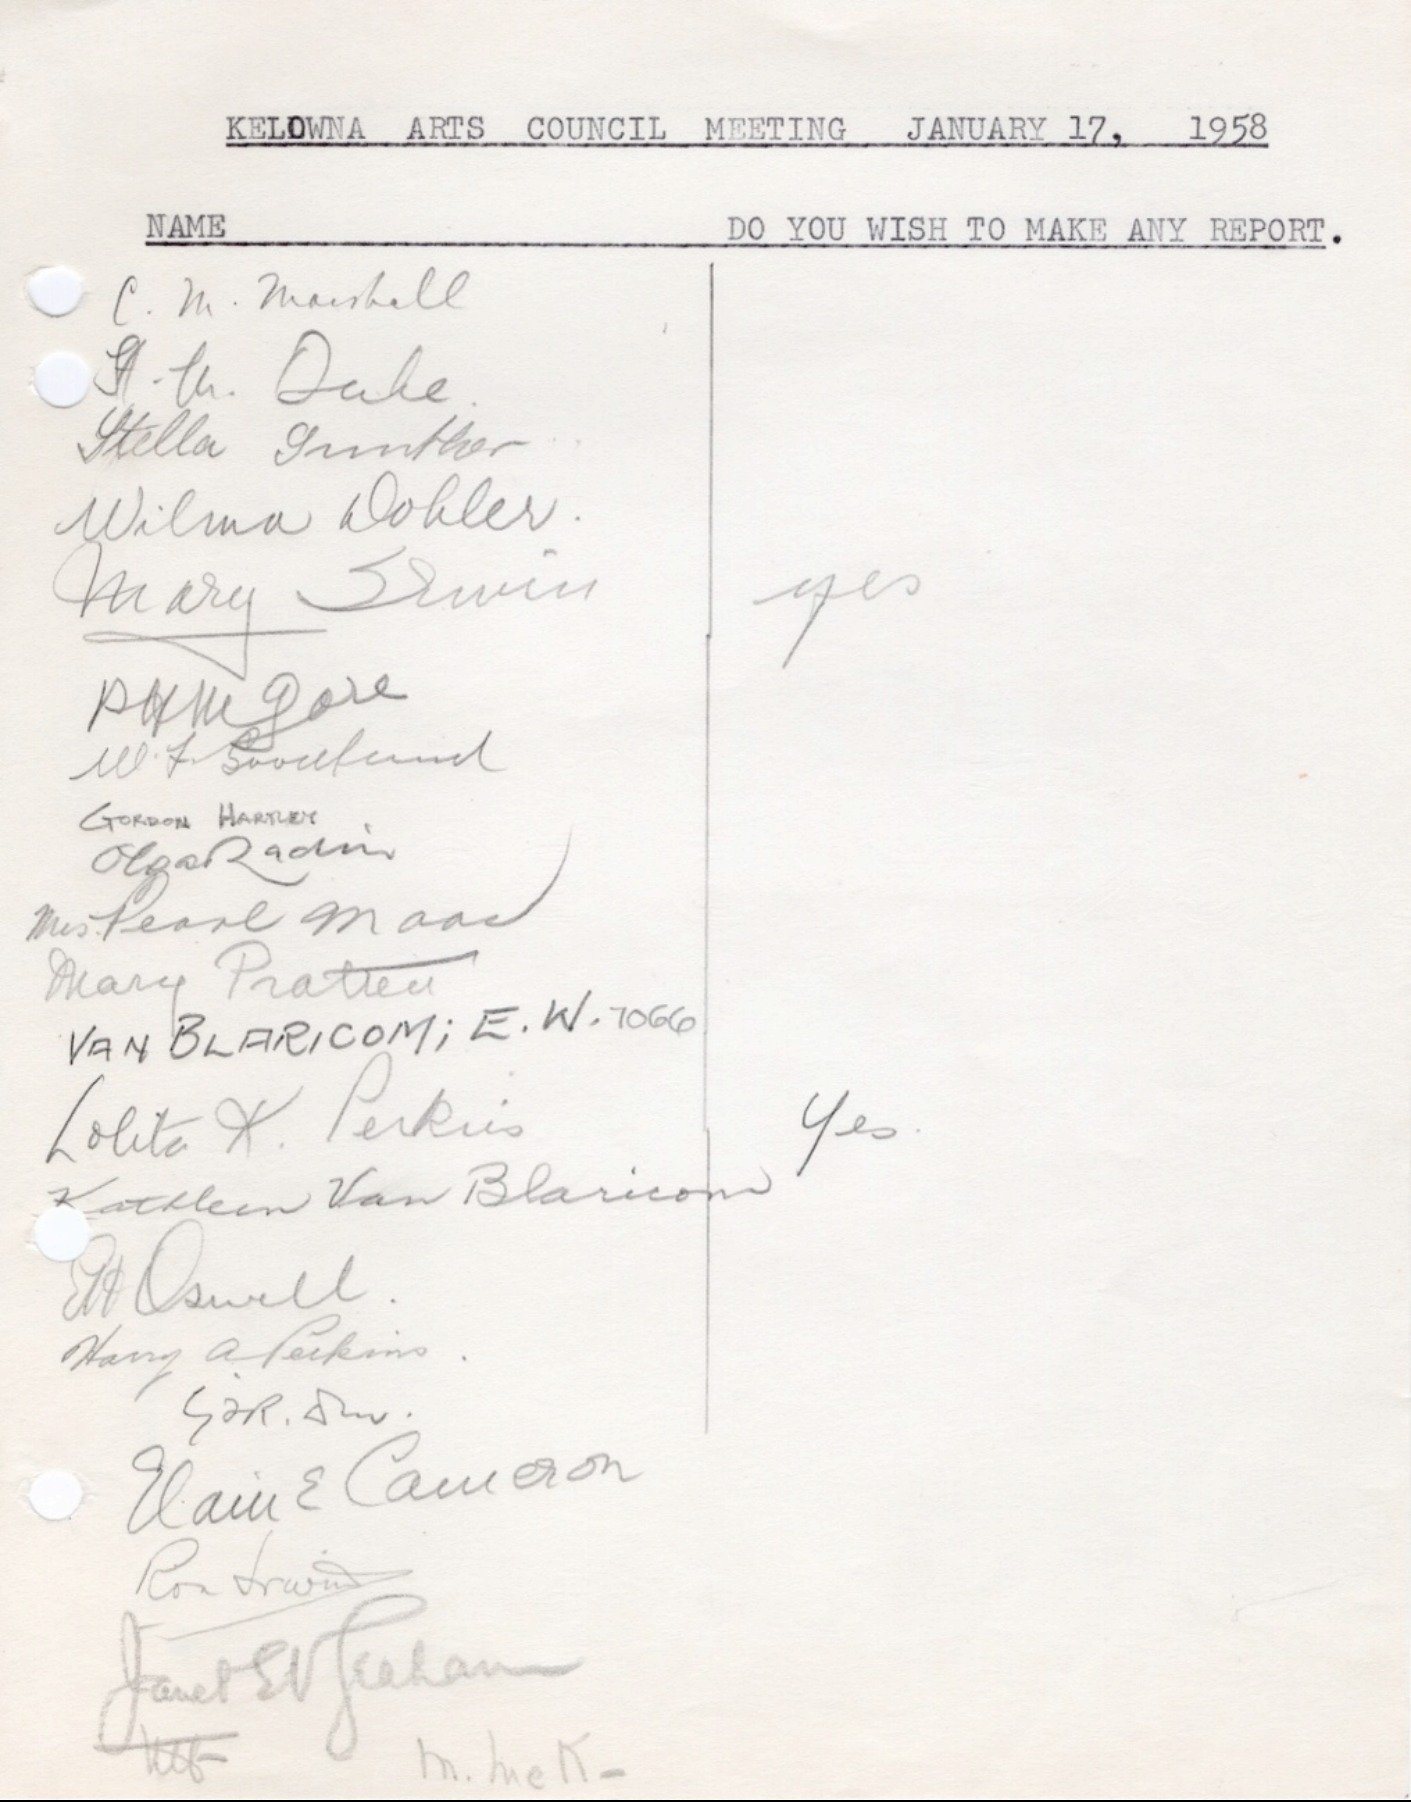 KELOWNA ARTS COUNCIL MEETING JANUARY 17, 1958
NAME DO YOU WISH TO MAKE ANY REPORT.
C. M. Marshall
Stella Gunther
Wilma Dohler.
Mary Irwin yes
Gore
W. F.
GORDON HARTLEY
Olga
Mrs. Pearl
Mary Pratten
VAN BLARICOM; E. W. 7066
Lolita K. Perkins Yes.
Kathleen Van Blaricom
EH Oswell.
Harry A Perkins.
Elaine Cameron
Ron Irwin
Janet EV Graham
M. McK-